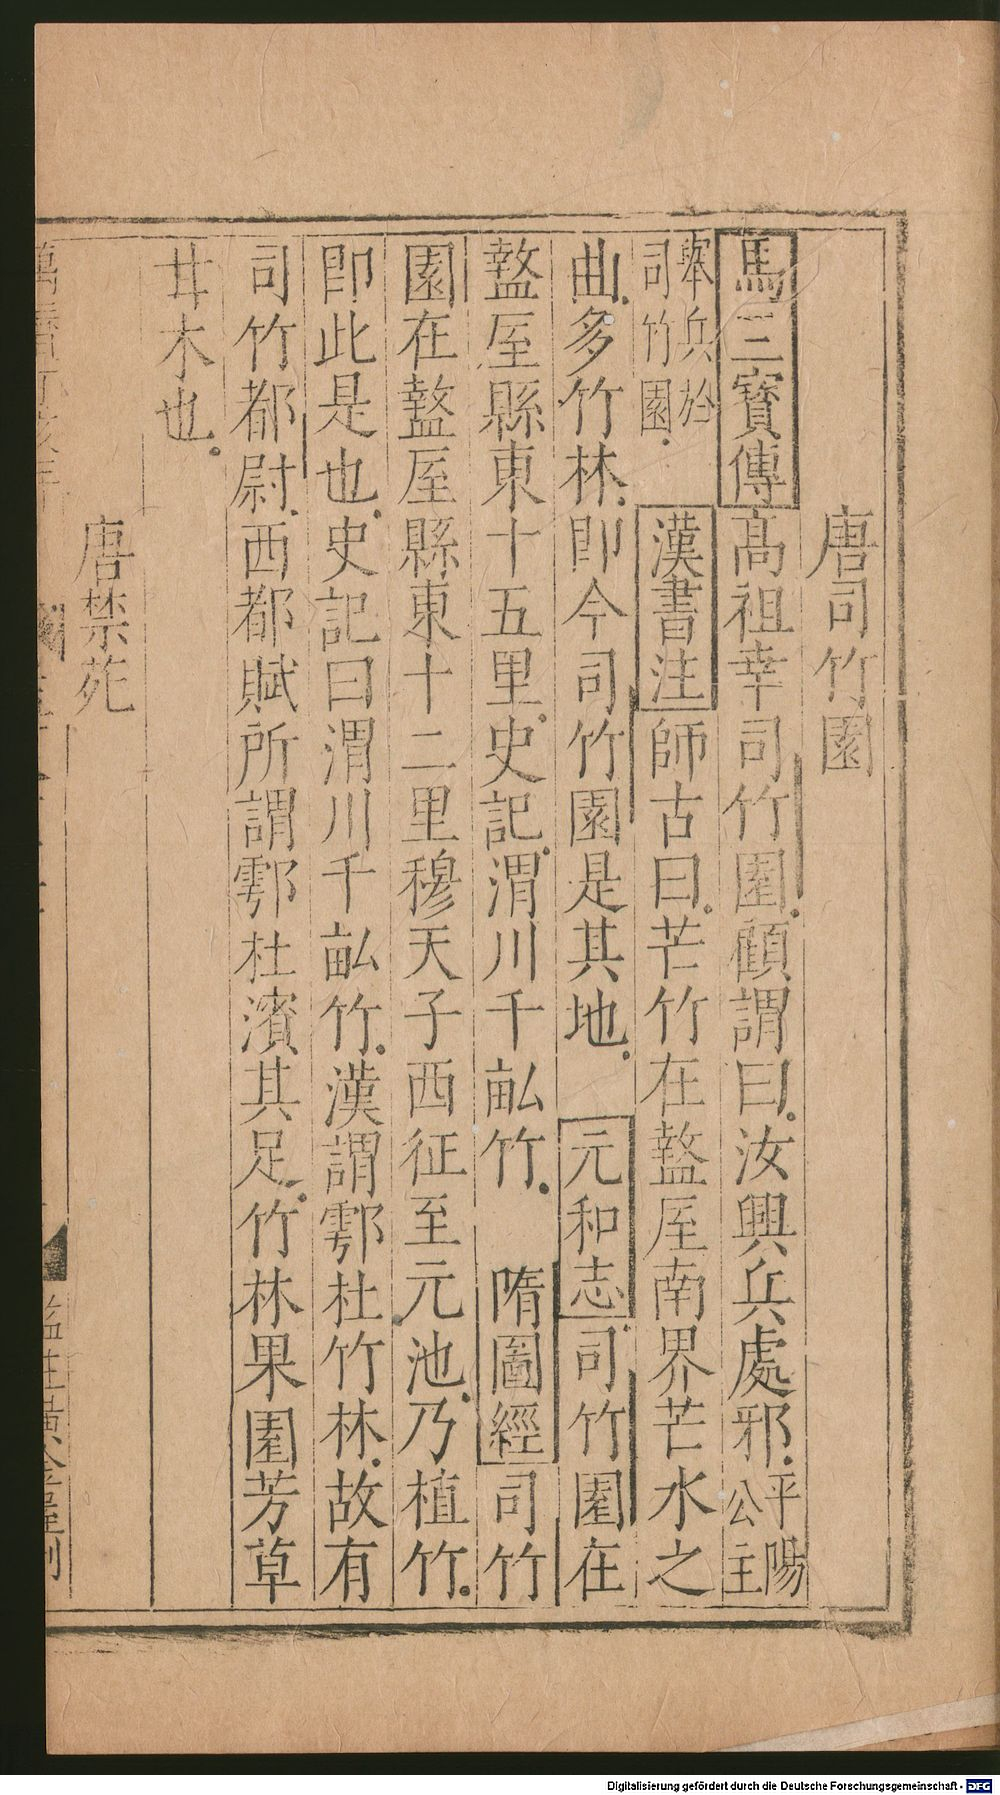 唐司竹園
馬三寶傳高祖幸司竹園顧謂曰汝興兵處邪平陽公主
舉兵於司竹園漢書注師古曰芒竹在盩厔南界芒水之
曲多竹林即今司竹園是其地元和志司竹園在
盩厔縣東十五里史記渭川千畝竹隋圖經司竹
園在盩厔縣東十二里穆天子西征至元池乃植竹
即此是也史記曰渭川千畝竹漢謂鄠杜竹林故有
司竹都尉西都賦所謂鄠杜濱其足竹林果園芳草
甘木也
唐禁苑
Digitalisierung gefördert durch die Deutsche Forschungsgemeinschaft - DFG